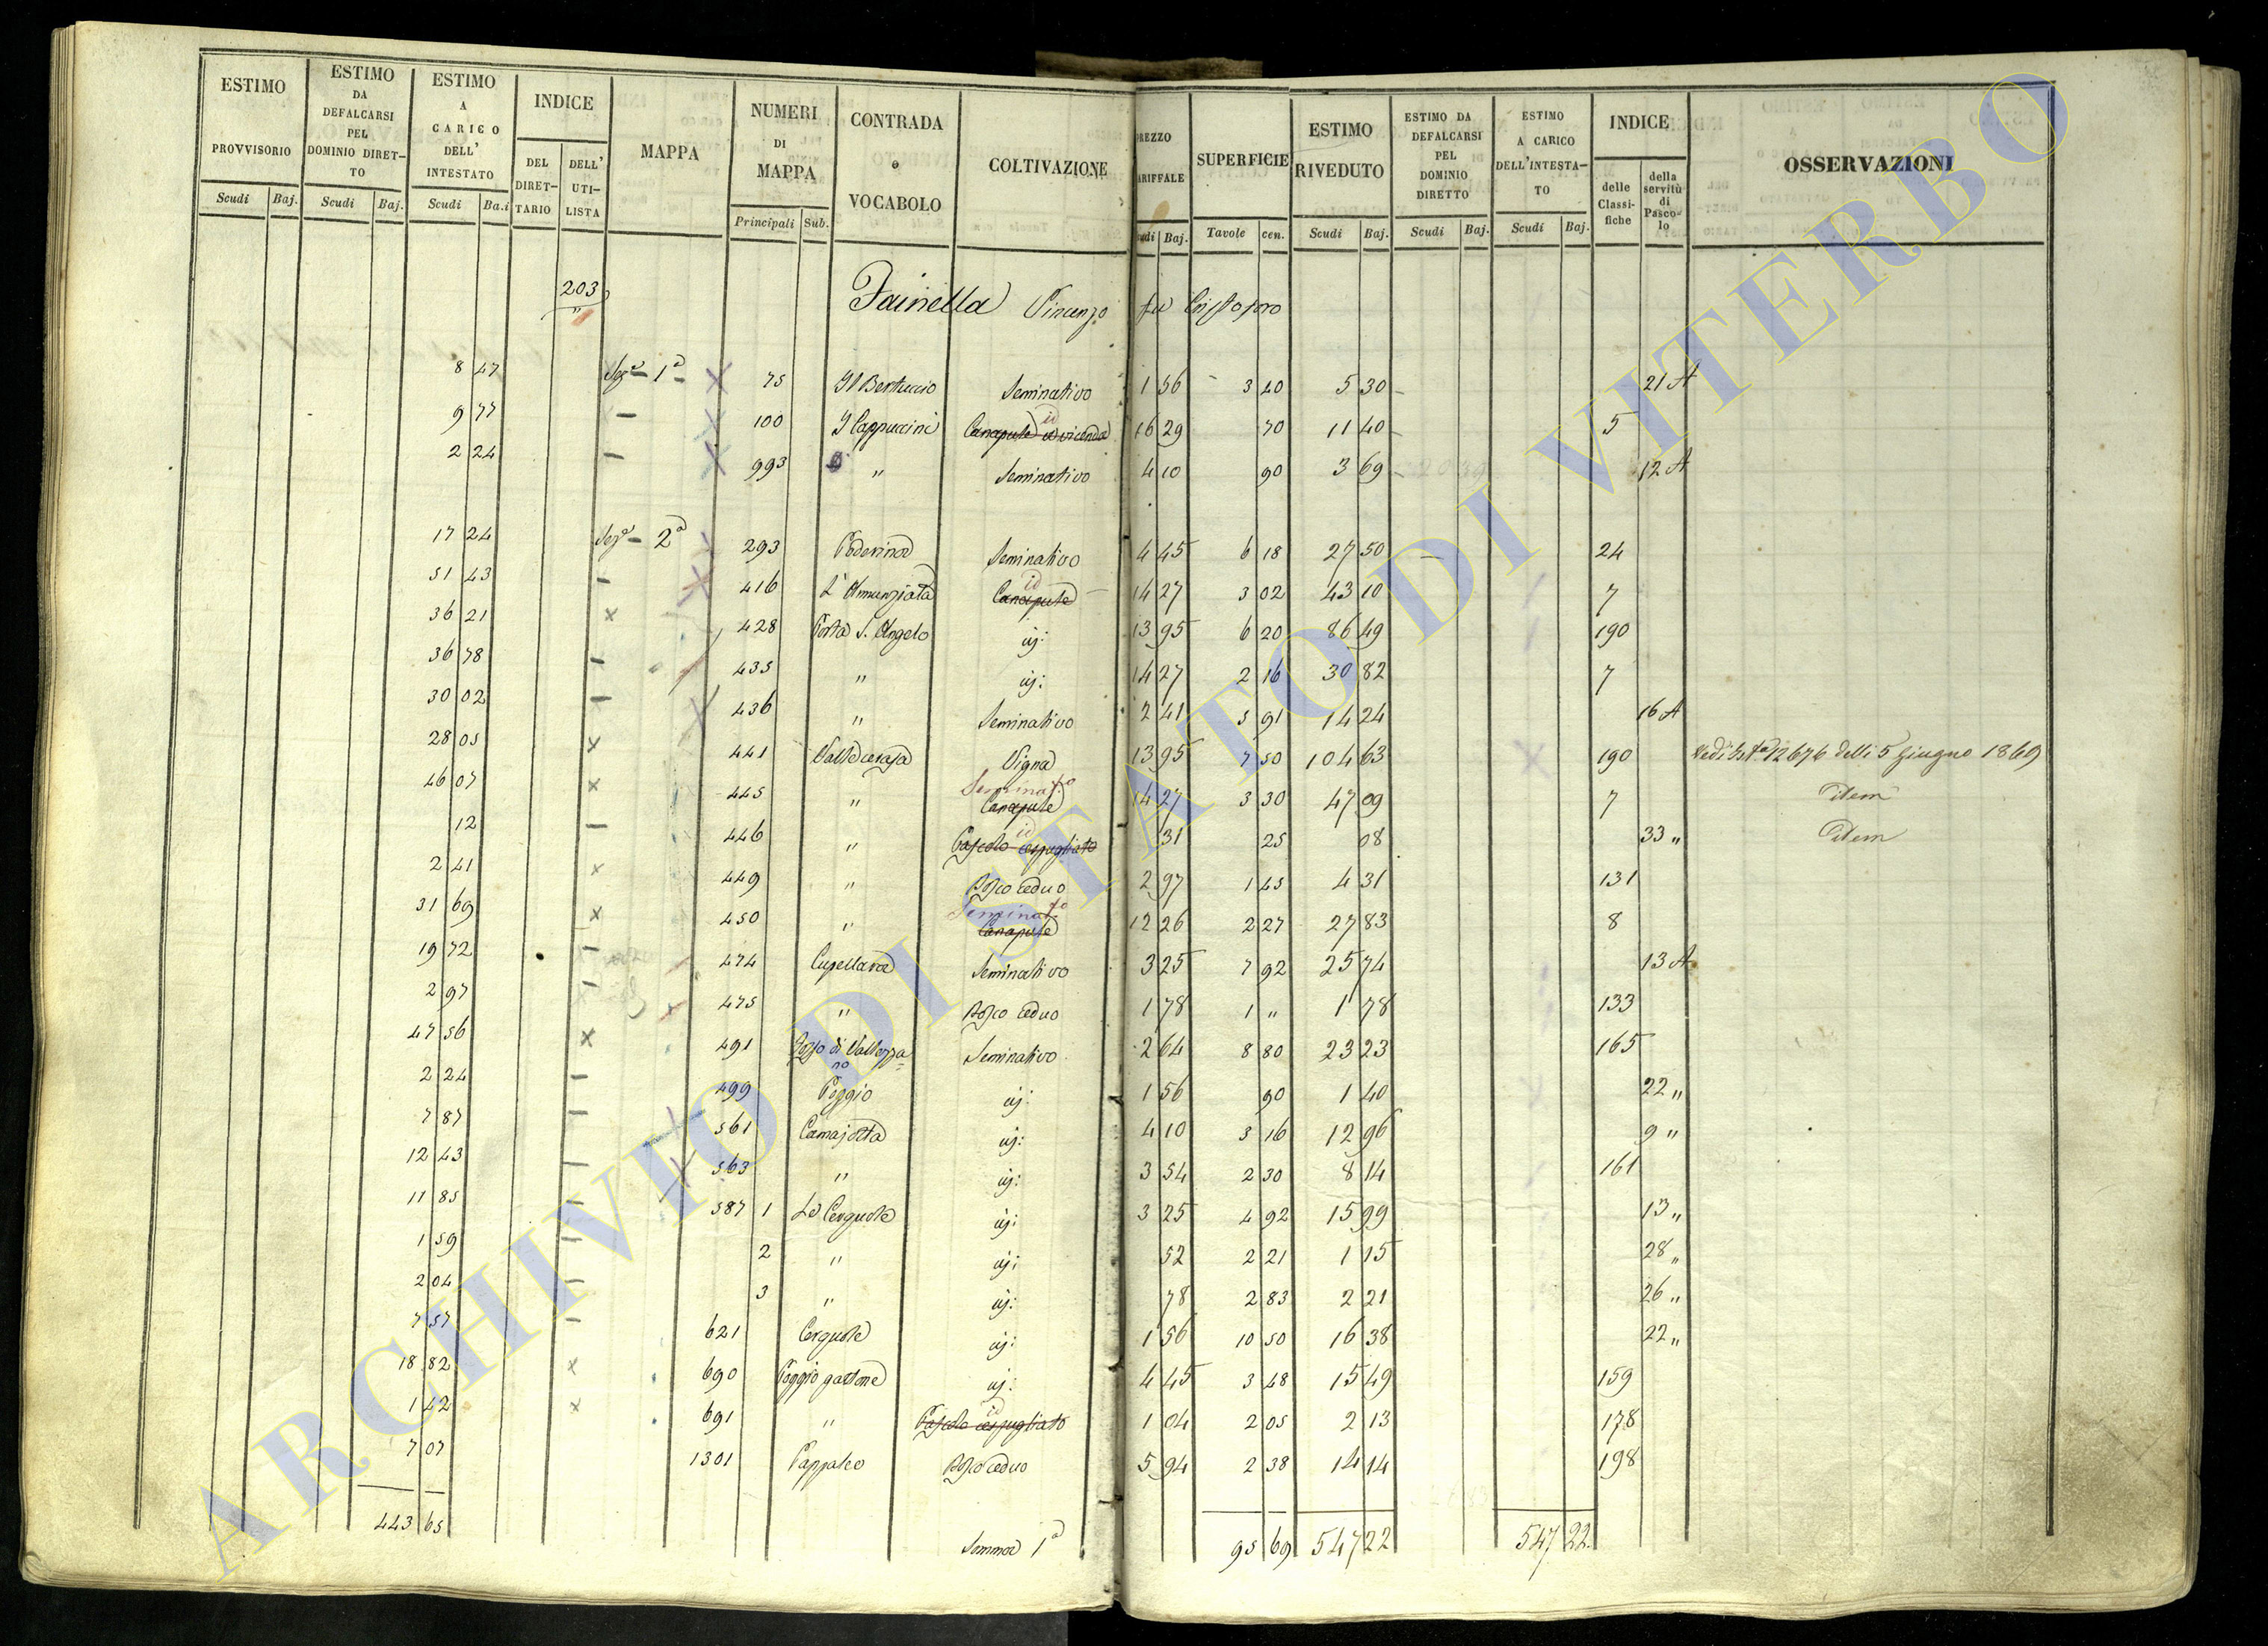 ESTIMO PROVVISORIO Scudi Baj. | ESTIMO DA DEFALCARSI PEL DOMINIO DIRETTO Scudi Baj. | ESTIMO A CARICO DELL' INTESTATO Scudi Ba.i | INDICE DEL DIRETTARIO DELL' UTILISTA | MAPPA | NUMERI DI MAPPA Principali Sub. | CONTRADA o VOCABOLO | COLTIVAZIONE | PREZZO TARIFFALE Scudi Baj. | SUPERFICIE Tavole cen. | ESTIMO RIVEDUTO Scudi Baj. | ESTIMO DA DEFALCARSI PEL DOMINIO DIRETTO Scudi Baj. | ESTIMO A CARICO DELL'INTESTATO Scudi Baj. | INDICE delle Classifiche della servitù di Pascolo | OSSERVAZIONI
203 Fainella Vincenzo fu Cristoforo
8 47 Sezᵉ 1ª 75 Il Bertuccio Seminativo 1 56 3 40 5 30 21 A
9 77 — 100 I Cappuccini Canapule a vicenda id 16 29 70 11 40 5
2 24 — 993 " Seminativo 4 10 90 3 69 12 A
17 24 Sezᵉ 2ª 293 Poderina Seminativo 4 45 6 18 27 50 24
51 43 — 416 L'Annunziata Canapule id 14 27 3 02 43 10 7
36 21 × 428 Porta S. Angelo id: 13 95 6 20 86 49 190
36 78 — 435 " id: 14 27 2 16 30 82 7
30 02 — 436 " Seminativo 2 41 5 91 14 24 16 A
28 05 × 441 Valle cerasa Vigna 13 95 7 50 104 63 190 Vedi Ista 12676 delli 5 Giugno 1869
46 07 × 445 " Seminato Canapule 14 27 3 30 47 09 7 item
12 — 446 " Pascolo cespugliato id 31 25 08 33 " item
2 41 × 449 " Bosco ceduo 2 97 1 45 4 31 131
31 69 × 450 " Seminato Canapule 12 26 2 27 27 83 8
19 72 — 474 Cupellara Seminativo 3 25 7 92 25 74 13 A
2 97 — 475 " Bosco ceduo 1 78 1 " 1 78 133
47 56 × 491 Seminativo 2 64 8 80 23 23 165
2 24 — 499 Poggio id: 1 56 90 1 40 22 "
7 87 — 561 Camajotta id: 4 10 3 16 12 96 9 "
12 43 — 563 " id: 3 54 2 30 8 14 161
11 85 — 587 1 Le Cerquole id: 3 25 4 92 15 99 13 "
1 59 — 2 " id: 52 2 21 1 15 28 "
2 04 — 3 " id: 78 2 83 2 21 26 "
7 57 — 621 Cerquole id: 1 56 10 50 16 38 22 "
18 82 × 690 Poggio gattone id: 4 45 3 48 15 49 159
1 42 × 691 " Pascolo cespugliato id 1 04 2 05 2 13 178
7 07 1301 Pappaleo Bosco ceduo 5 94 2 38 14 14 198
443 65 Somma 1ª 95 69 547 22 547 22
ARCHIVIO DI STATO DI VITERBO